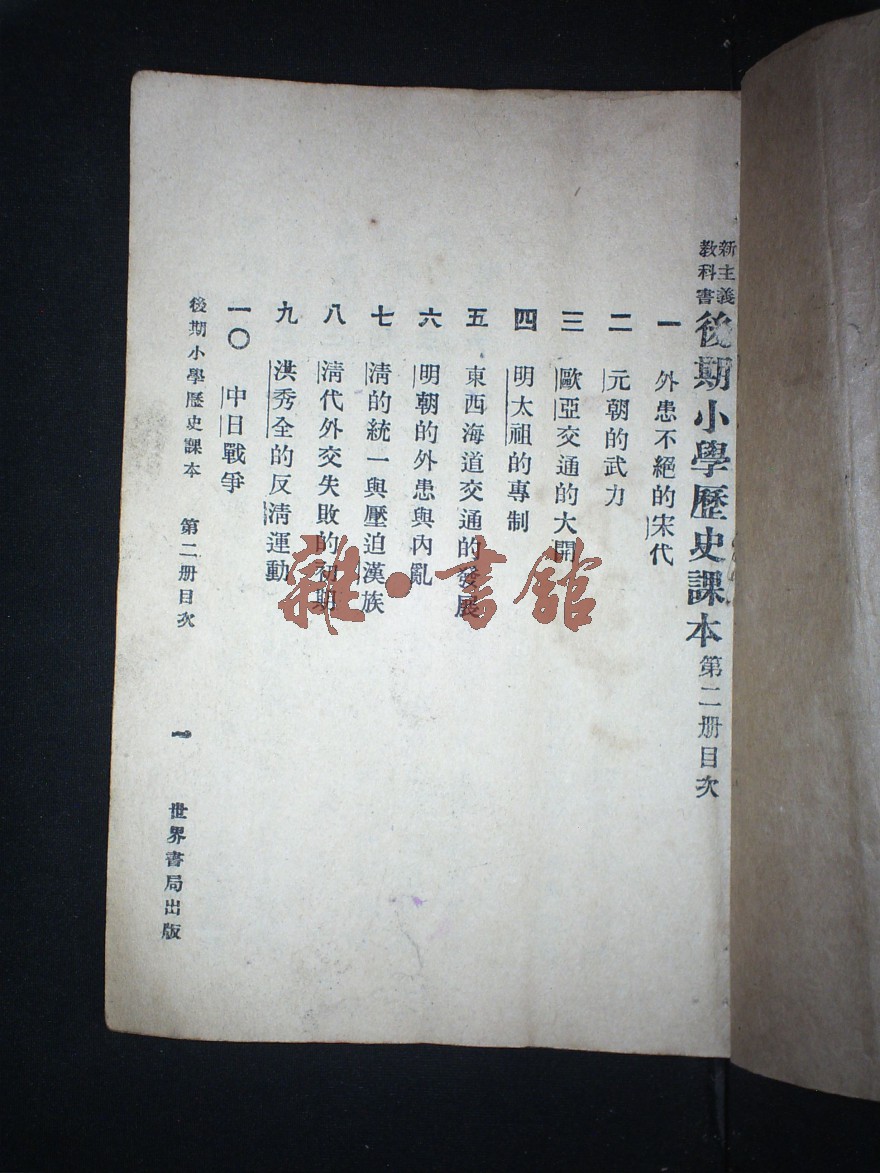 新主義
教科書
後期小學歷史課本 第二册目次
一 外患不絕的宋代
二 元朝的武力
三 歐亞交通的大開
四 明太祖的專制
五 東西海道交通的發展
六 明朝的外患與內亂
七 清的統一與壓迫漢族
八 清代外交失敗的初期
九 洪秀全的反清運動
一〇 中日戰爭
後期小學歷史課本 第二册目次
一
世界書局出版
雜·書館